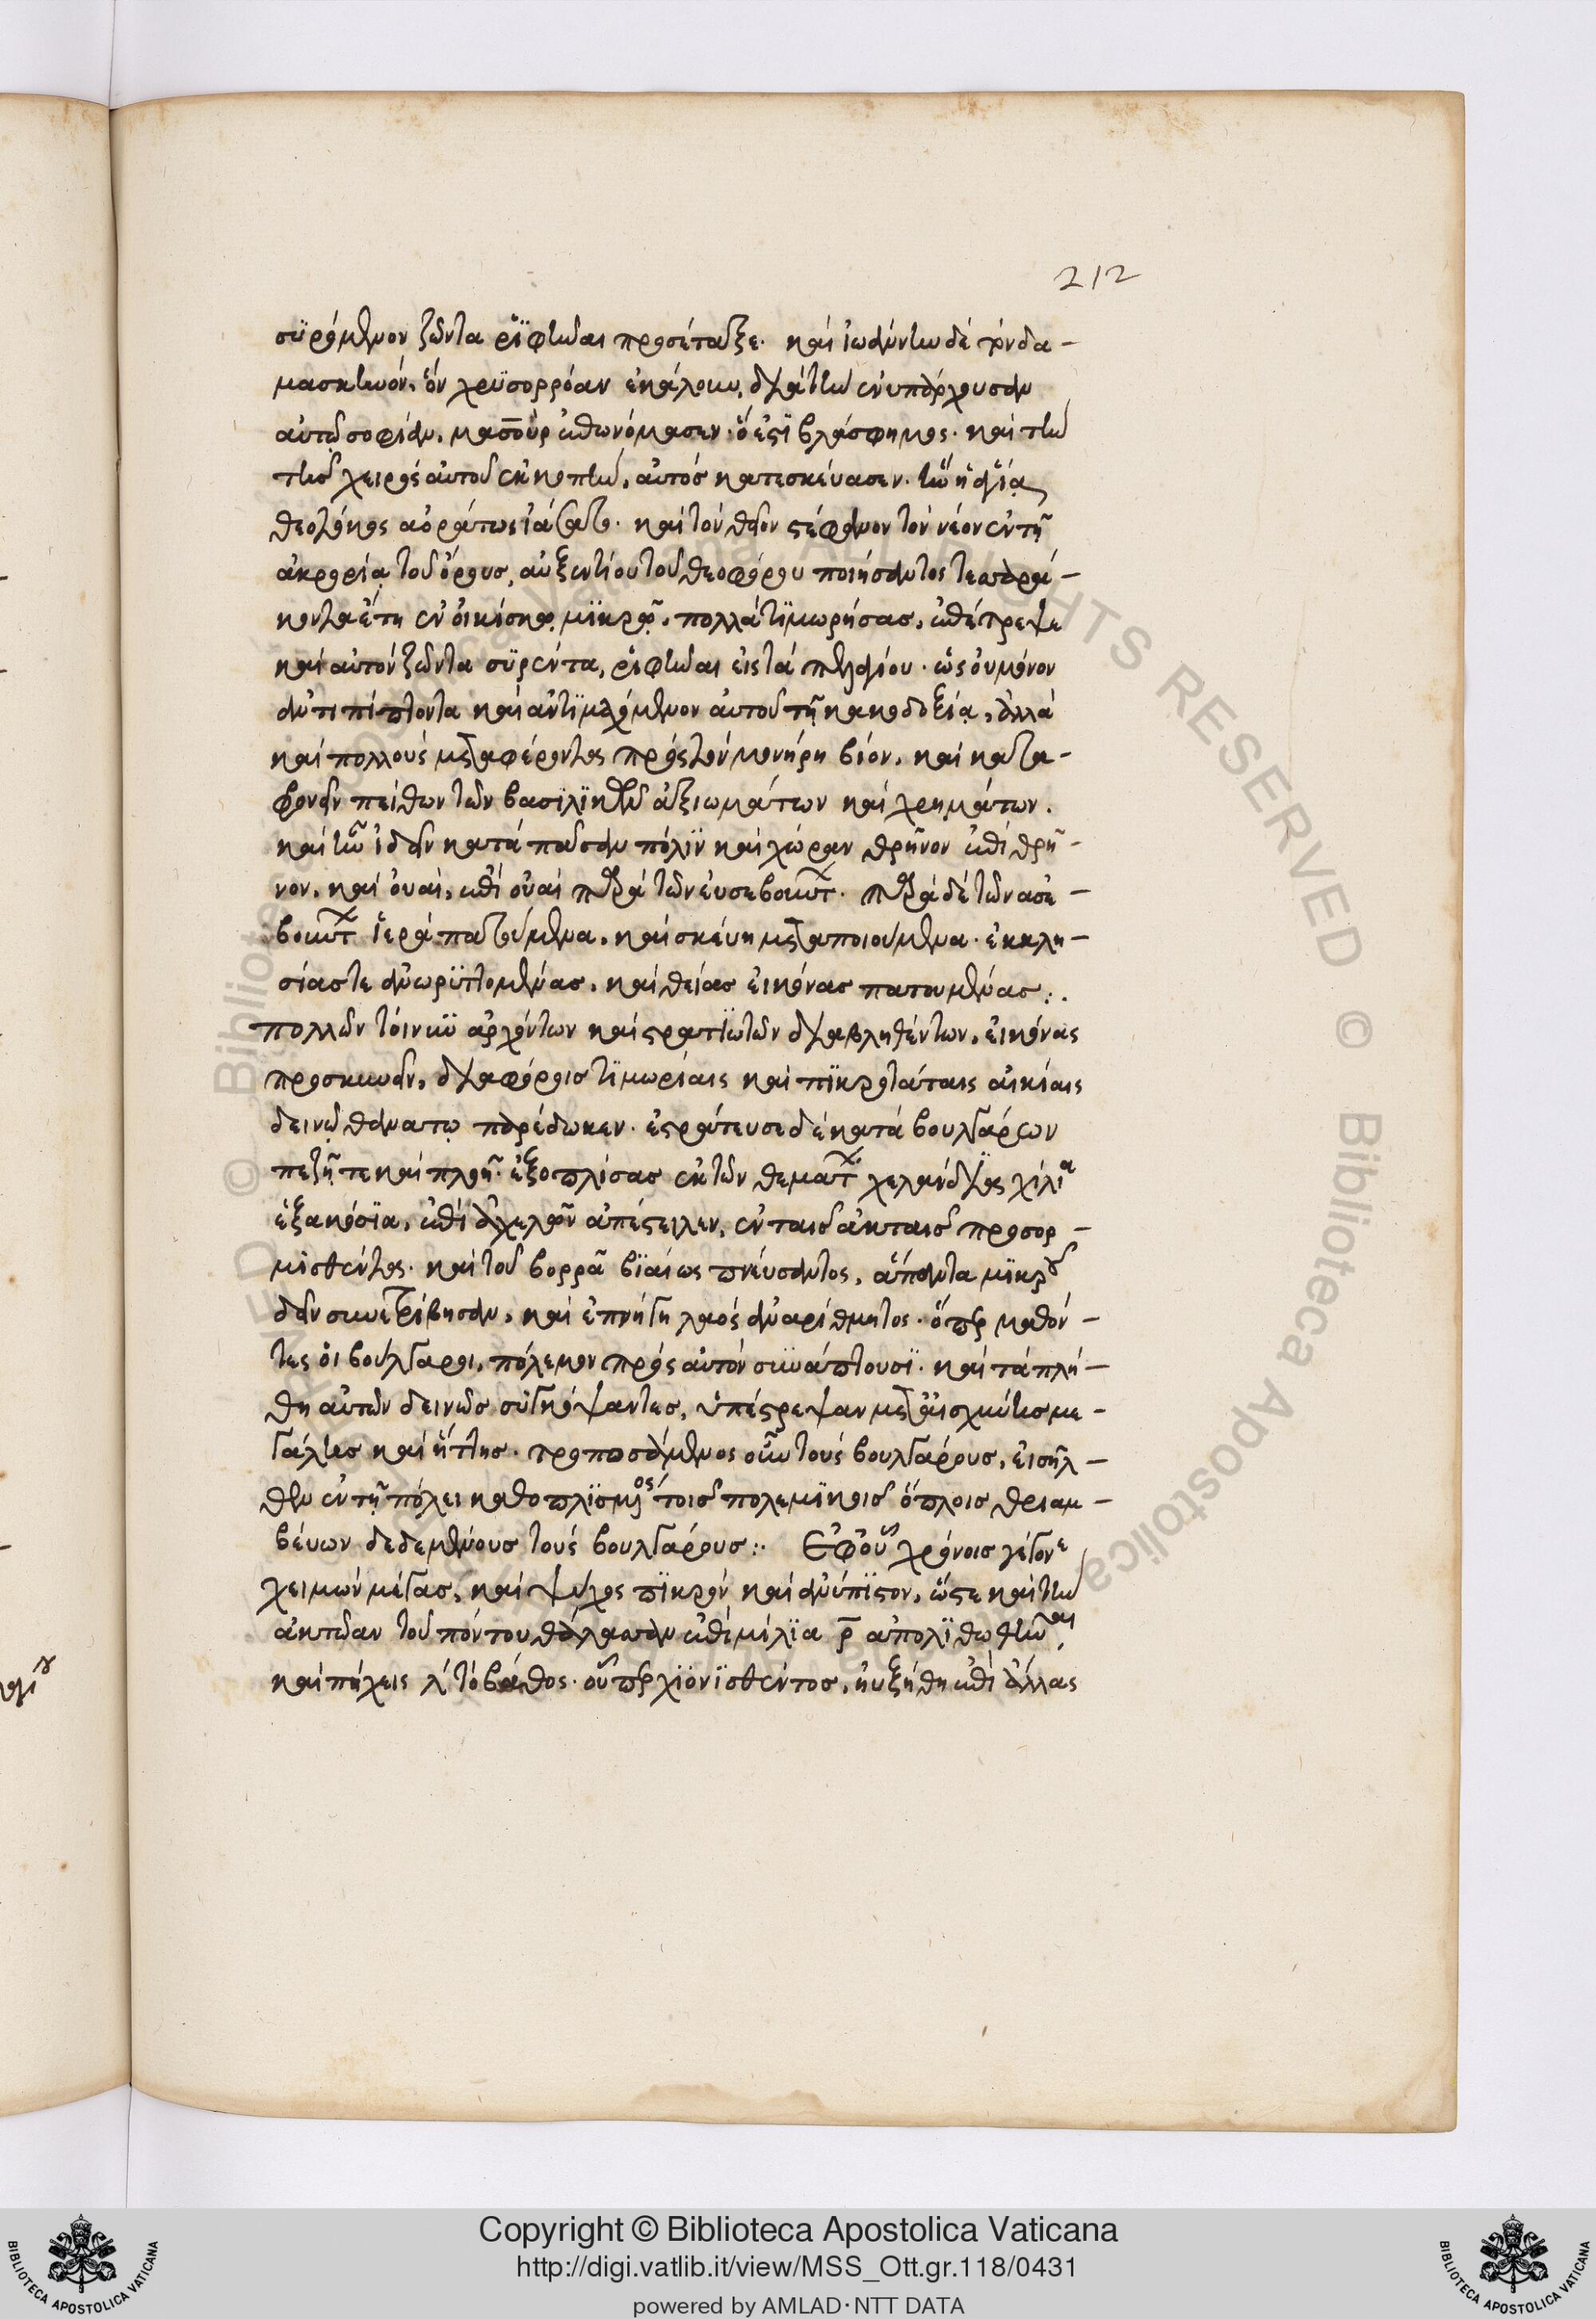 212
συρόμενον ζῶντα ῥιφῆναι προσέταξε. καὶ ἰωάννην δὲ τὸν δα-
μασκηνόν, ὃν χρυσορρόαν ἐκάλουν, διὰ τὴν ἐνυπάρχουσαν
αὐτῷ σοφίαν, μασοὺρ ἐπωνόμασεν. ὅ ἐστι βλάσφημος. καὶ τὴν
τῆς χειρὸς αὐτοῦ ἐκκοπὴν, αὐτὸς κατεσκεύασεν. ἣν ἡ ἁγία
θεοτόκος ἀοράτως ἰάσατο. καὶ τὸν θεῖον στέφανον τὸν νέον ἐν τῇ
ἀκρωρία τοῦ ὄρους, αὐξεντίου τοῦ θεοφόρου ποιήσαντος τεσσαρά-
κοντα ἔτη ἐν οἰκίσκῳ μικρῷ, πολλὰ τιμωρήσας, ἐπέτρεψε
καὶ αὐτὸν ζῶντα συρέντα, ῥιφῆναι εἰς τὰ πελαγίου. ὡς οὐ μόνον
ἀντιπίπτοντα καὶ ἀντιμαχόμενον αὐτοῦ τῇ κακοδοξίᾳ, ἀλλὰ
καὶ πολλοὺς μεταφέροντος πρὸς τὸν μονήρη βίον, καὶ κατα-
φρονεῖν πείθων τῶν βασιλικῶν ἀξιωμάτων καὶ χρημάτων.
καὶ ἦν ἰδεῖν κατὰ πᾶσαν πόλιν καὶ χώραν θρῆνον ἐπὶ θρῆ-
νον, καὶ οὐαὶ, ἐπὶ οὐαὶ παρὰ τῶν εὐσεβούντων. παρὰ δὲ τῶν ἀσε-
βούντων ἱερὰ πατούμενα, καὶ σκεύη μεταποιούμενα. ἐκκλη-
σίας τε ἀνωρυττομένας, καὶ θείας εἰκόνας πατουμένας:.
πολλῶν τοίνυν ἀρχόντων καὶ στρατιωτῶν διαβληθέντων, εἰκόνας
προσκυνεῖν, διαφόροις τιμωρίαις καὶ πικροτάταις αἰκίαις
δεινῷ θανάτῳ παρέδωκεν. ἐστράτευσε δὲ κατὰ βουλγάρων
πεζῇ τε καὶ πλοῒ. ἐξοπλίσας ἐκ τῶν θεμάτων χελάνδιος χίλια
ἑξακόσια, ἐπὶ ἀχελῶν ἀπέστειλεν, ἐν ταῖς ἀκταῖς προσορ-
μισθέντος. καὶ τοῦ βορρᾶ βιαίως πνεύσαντος, ἅπαντα μικροῦ
δεῖν συνετρίβησαν, καὶ ἐπνίγη λαὸς ἀναρίθμητος. ὅπερ μαθόν-
τες οἱ βούλγαροι, πόλεμον πρὸς αὐτὸν συνάπτουσι. καὶ τὰ πλή-
θη αὐτῶν δεινῶς συγκόψαντες, ὑπέστρεψαν μετ' αἰσχύνης με-
γάλης καὶ ἥττης. τροπωσάμενος οὖν τοὺς βουλγάρους, εἰσῆλ-
θεν ἐν τῇ πόλει καθοπλισμένος τοῖς πολεμικοῖς ὅπλοις θριαμ-
βεύων δεδεμένους τοὺς βουλγάρους:. Ἐφ' οὗ χρόνοις γέγονε
χειμὼν μέγας, καὶ ψύχος πικρὸν καὶ ἀνύπιστον, ὥστε καὶ τὴν
ἀκταίαν τοῦ πόντου θάλασσαν ἐπὶ μίλια ρ̅ ἀπολιθωθῆναι,
καὶ πήχεις λ' τὸ βάθος. οὗπερ χιονισθέντος, ηὐξήθη ἐπὶ ἄλλας
Copyright © Biblioteca Apostolica Vaticana
http://digi.vatlib.it/view/MSS_Ott.gr.118/0431
powered by AMLAD·NTT DATA